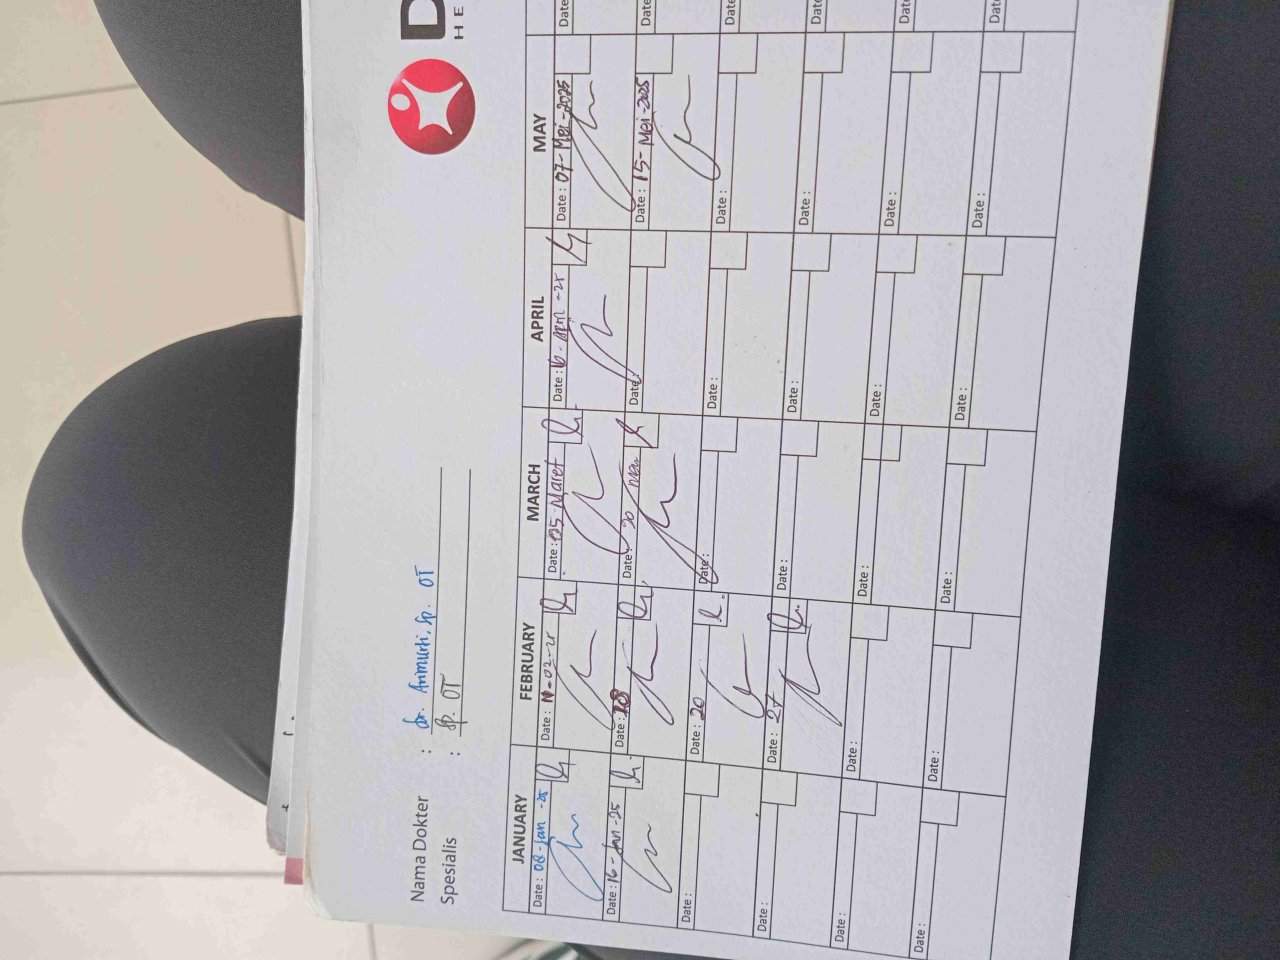 D
HE
Nama Dokter : dr. Arimurti, Sp. OT
Spesialis : Sp. OT
JANUARY FEBRUARY MARCH APRIL MAY
Date : 08-Jan-25 Date : Date : 05-Maret Date : Date : 07-Mei-2025 Date
Date : 16-Jan-25 Date : Date : 20 Mar Date : Date : 15-Mei-2025 Date
Date : Date : 20 Date : Date : Date : Date
Date : Date : 27 Date : Date : Date : Date
Date : Date : Date : Date : Date : Date
Date : Date : Date : Date : Date : Date